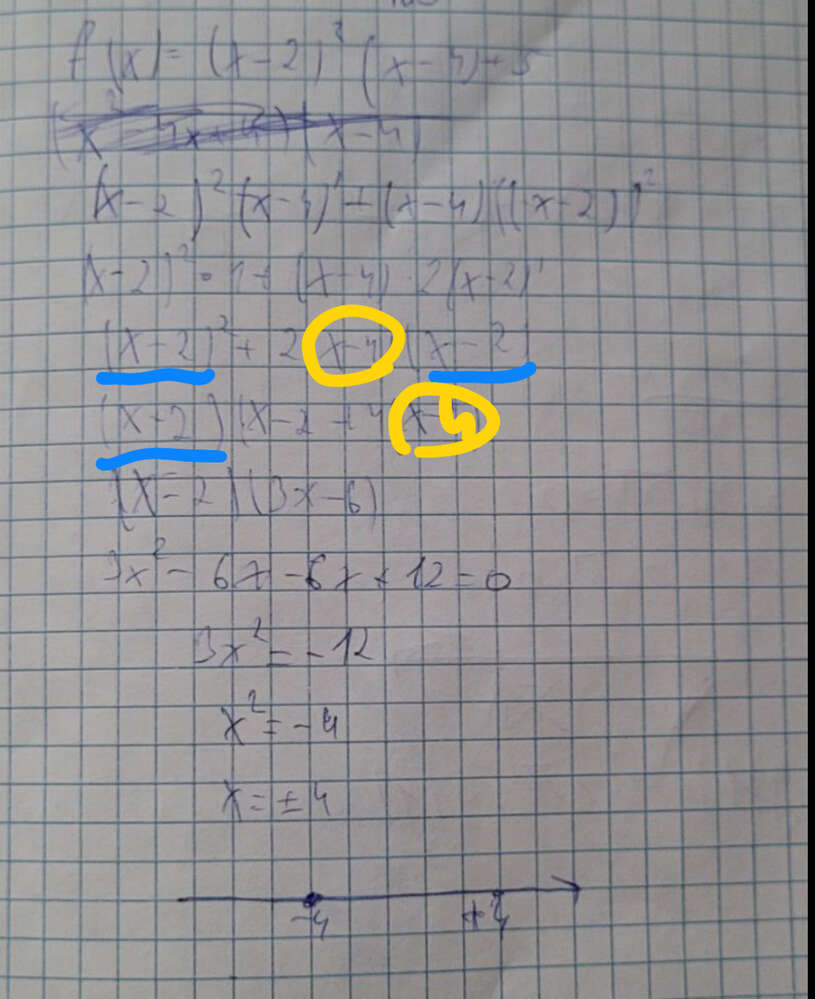 f(x) = (x-2)² (x-4)+5
(x-2)²(x-4)'+(x-4)((x-2))²
(x-2)²·1+(x-4)·2(x-2)'
(x-2)²+2(x-4)(x-2)
(x-2)(x-2+
(x-2)(3x-6)
3x²-6x-6x+12=0
3x²=-12
x²=-4
x=±4
-4 +4